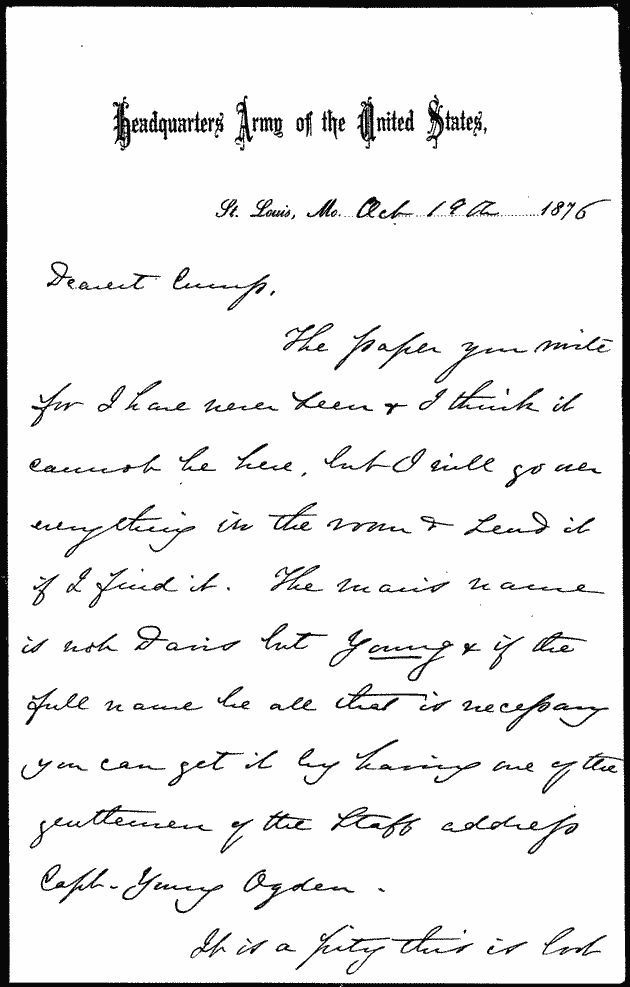 Headquarters Army of the United States,
St. Louis, Mo. Oct 19th 1876
Dearest Cump,
The paper you write
for I have never seen & I think it
cannot be here, but I will go over
everything in the room & send it
if I find it. The man's name
is not Davis but Young & if the
full name be all that is necessary
you can get it by having one of the
gentlemen of the Staff address
Capt. Young Ogden.
It is a pity this is lost